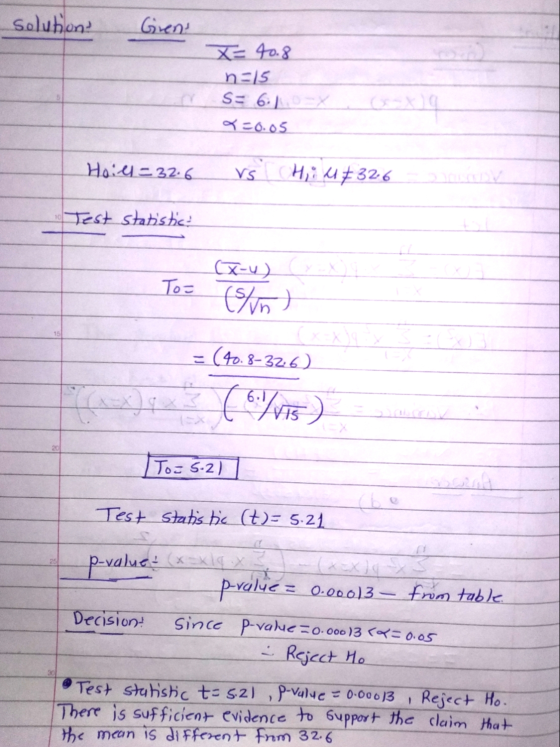 Solution: Given:
x̄ = 40.8
n=15
S= 6.1
α=0.05
H₀: μ = 32.6 vs H₁: μ ≠ 32.6
Test statistic:
T₀ = (x̄-μ) / (S/√n)
= (40.8-32.6) / (6.1/√15)
T₀= 5.21
Test statistic (t)= 5.21
p-value:
p-value = 0.00013 — from table
Decision: Since p-value=0.00013 < α= 0.05
∴ Reject H₀
• Test statistic t= 5.21, p-value = 0.00013, Reject H₀.
There is sufficient evidence to support the claim that
the mean is different from 32.6